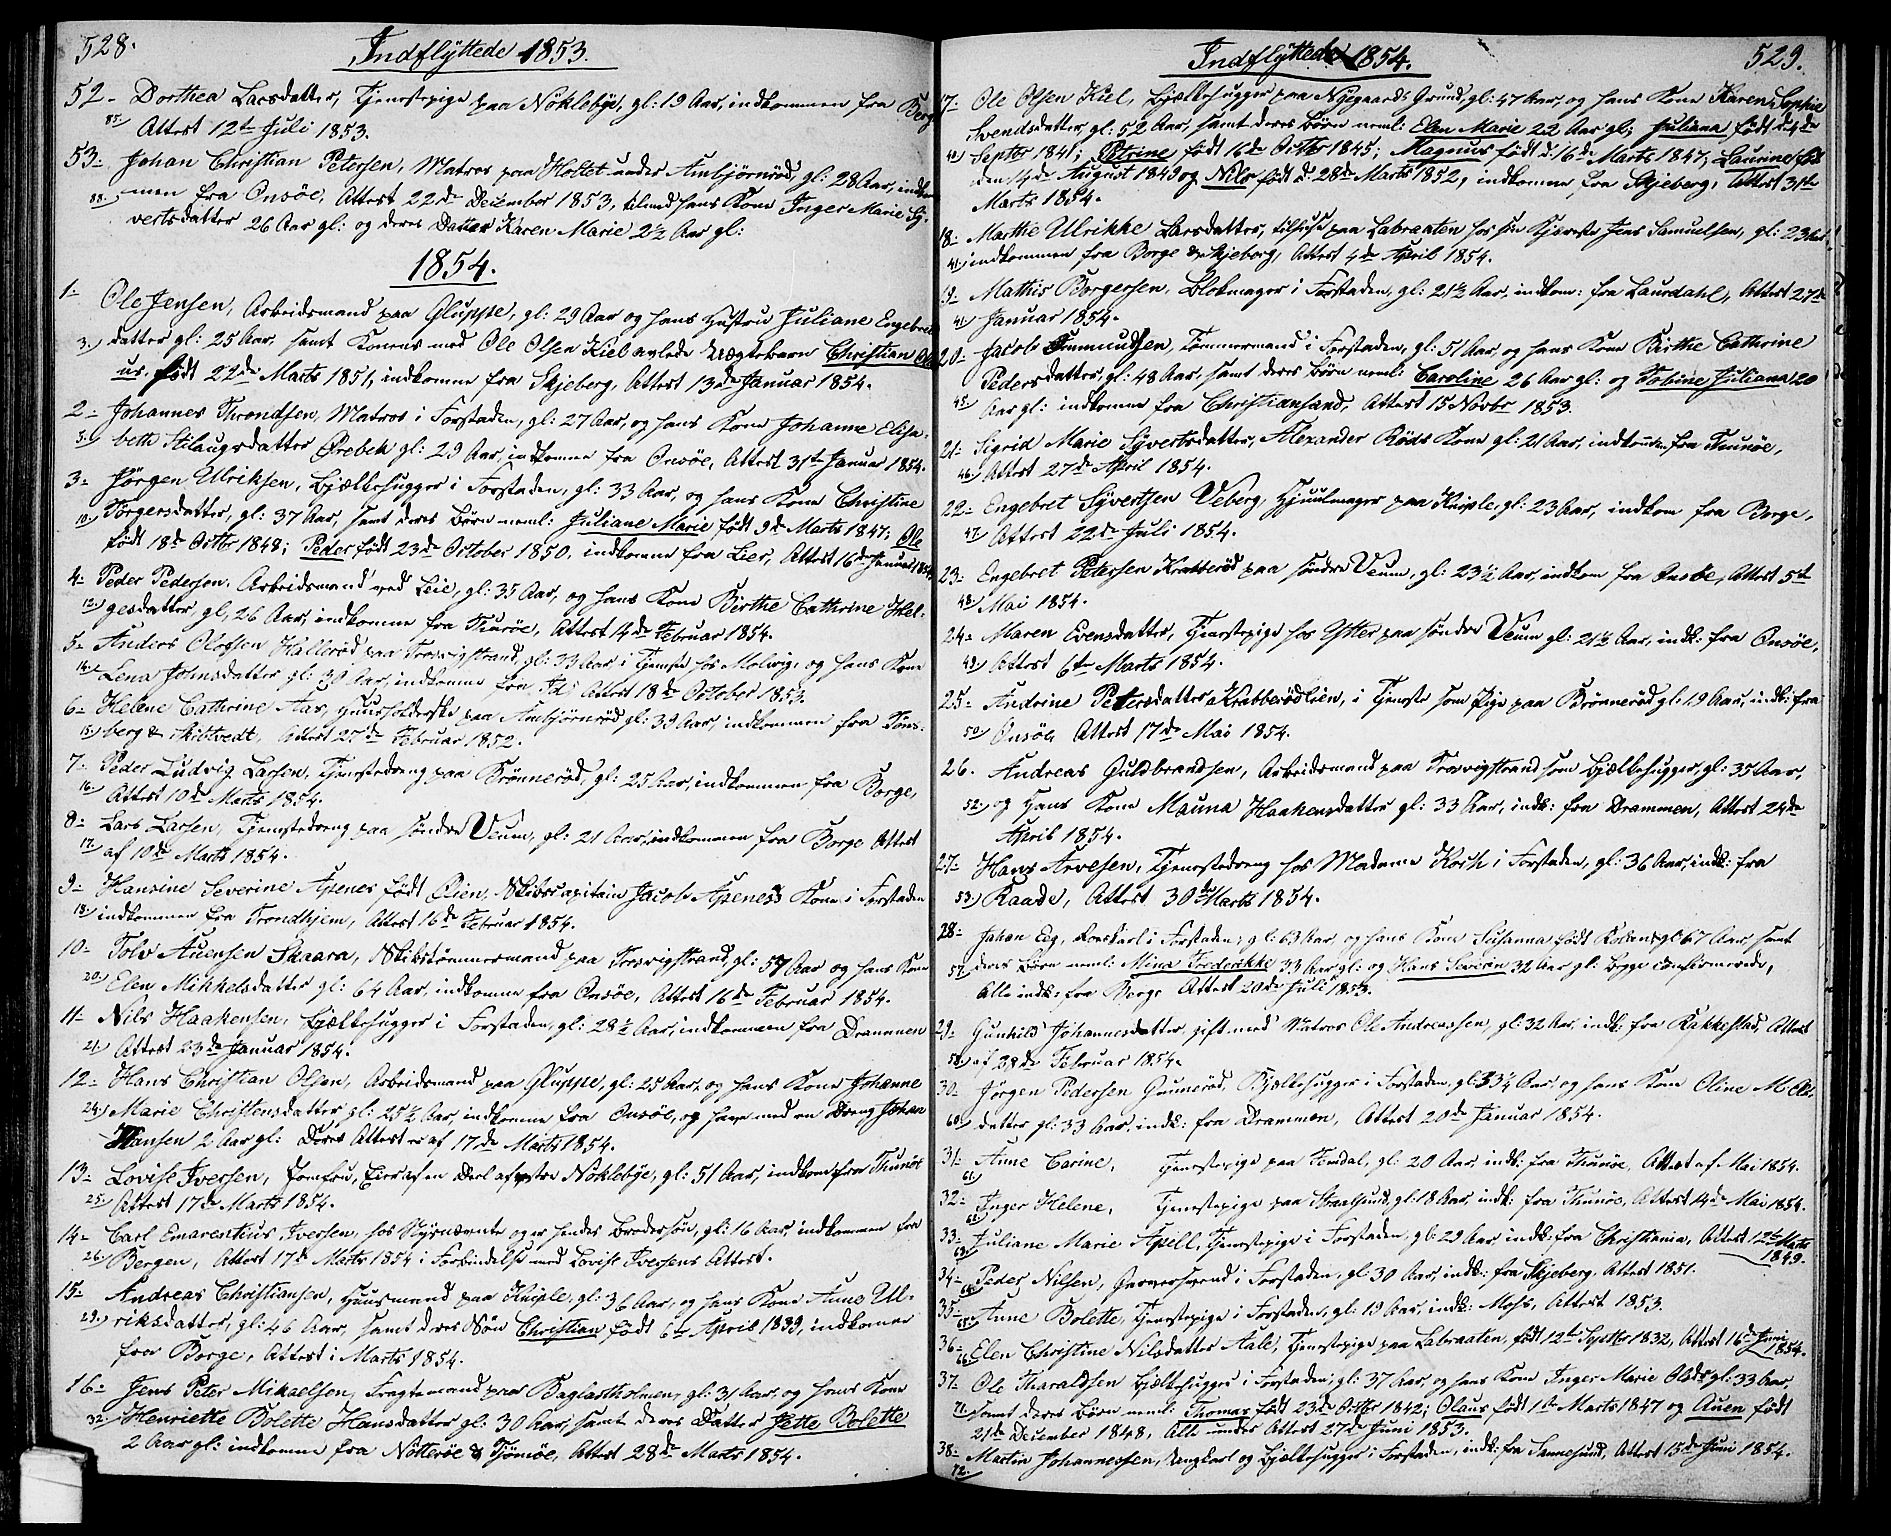 528.
Indflyttede 1853.
52- Dorthea Larsdatter, Tjenestepige paa Nøklebye, gl: 19 Aar, indkommen fra Borge
85) Attest 12te Juli 1853.
53- Johan Christian Petersen, Matros paa Holtet under Ambjørnrød, gl: 28 Aar, indkom
88) men fra Onsøe, Attest 22de Dezember 1853, tilmed hans Kone Inger Marie Sy-
vertsdatter 26 Aar gl: og deres Datter Karen Marie 2½ Aar gl:
1854.
1- Ole Jensen, Arbeidsmand paa Gluppe, gl: 29 Aar og hans Hustru Juliane Engebret
3) datter gl: 25 Aar, samt Konens med Ole Olsen Kiel avlede Uægtebarn Christian Ola
us, født 22de Marts 1851, indkomne fra Skjeberg, Attest 13de Januar 1854.
2- Johannes Throndsen, Matros i Forstaden, gl: 27 Aar, og hans Kone Johanne Elisa-
5) beth Stlaugsdatter Ørebek gl: 29 Aar, indkomne fra Onsøe, Attest 31te Januar 1854.
3- Jørgen Ulriksen, Bjælkehugger i Forstaden, gl: 33 Aar, og hans Kone Christine
10) Torgersdatter, gl: 37 Aar, samt deres Børn neml: Juliane Marie født 9de Marts 1847, Ole
født 18de Octbr 1848; Peder født 23de October 1850, indkomne fra Lier, Attest 16de Januar 1854
4- Peder Pedersen, Arbeidsmand ved Leie, gl: 35 Aar, og hans Kone Birthe Cathrine Hel-
12) gesdatter, gl, 26 Aar, indkomne fra Thurøe, Attest 14de Februar 1854.
5- Anders Olofsen Hallerød paa Trosvigstrand, gl: 33 Aar i Tjeneste hos Molvig, og hans Kone
14) Lena Johnsdatter gl: 30 Aar, indkomne fra Id, Attest 18de October 1853.
6- Helene Cathrine Aas, Huusholderske paa Ambjørnrød gl: 39 Aar, indkommen fra Tøns-
15) berg & Skibtvedt, Attest 27de Februar 1852.
7- Peder Ludvig Larsen, Tjenestedreng paa Brønnerød, gl: 25 Aar, indkommen fra Borge,
16) Attest 10de Marts 1854.
8- Lars Larsen, Tjenestedreng paa søndre Veum, gl: 21 Aar, indkommen fra Borge Attest
17) af 10de Marts 1854.
9- Hansine Severine Apenes født Øien, Skibscapitain Jacob Apenes's Kone i Forstaden
18) indkommen fra Trondhjem, Attest 16de Februar 1854.
10- Tolv Auensen Skaara, Skibstømmermand paa Trosvigstrand, gl: 57 Aar og hans Kone
20) Elen Mikkelsdatter gl: 64 Aar, indkomne fra Onsøe, Attest 16de Februar 1854.
11- Nils Haakensen, Bjælkehugger i Forstaden, gl: 28½ Aar, indkommen fra Drammen
21) Attest 23de Januar 1854.
12- Hans Christian Olsen, Arbeidsmand paa Gluppe, gl: 25 Aar, og hans Kone Johanne
24) Marie Christensdatter gl: 25½ Aar, indkomne fra Onsøe, og have med en Dreng Johan
Hansen 2 Aar gl: Deres Attest er af 17de Marts 1854.
13- Lovise Iversen, Jomfru, Eier af en Deel af vestre Nøklebye, gl: 51 Aar, indkom fra Thunøe
25) Attest 17de Marts 1854.
14- Carl Emarentius Iversen, hos Nysnævnte og er hendes Brodersøn, gl: 16 Aar, indkommen fra
26) Bergen, Attest 17de Marts 1854 i Forbindelse med Lovise Iversens Attest.
15- Andreas Christiansen, Huusmand paa Kniple, gl: 36 Aar, og hans Kone Anne Ul-
29) riksdatter, gl: 46 Aar, samt deres Søn Christian født 6te April 1839, indkomne
fra Borge, Attest i Marts 1854.
16- Jens Peter Mikaelsen, Fragtemand paa Baglastholmen, gl: 31 Aar, og hans Kone
32) Henriette Bolette Hansdatter gl: 30 Aar, samt deres Datter Jette Bolette
2 Aar gl: indkomne fra Nøtterøe & Tjømøe, Attest 28de Marts 1854.
Indflyttede 1854.
529.
17- Ole Olsen Kiel, Bjælkehugger paa Nygaards Grund, gl: 47 Aar, og hans Kone Karen Sophie
Svendsdatter, gl: 52 Aar, samt deres Børn neml: Elen Marie 22 Aar gl; Juliana født d: 4de
40) Septbr 1841; Petrine født 16de Octbr 1845; Magnus født d. 16de Marts 1847; Laurine født
den 14de August 1849 og Nils født d. 28de Marts 1852, indkomne fra Skjeberg, Attest 31te
Marts 1854.
18- Marthe Ulrikke Larsdatter, tilhuse paa Labraaten hos sin Kjæreste Jens Samuelsen, gl: 23 Aar
41) indkommen fra Borge & Skjeberg, Attest 4de April 1854.
19- Mathis Borgersen, Blokmager i Forstaden, gl: 21½ Aar, indkom: fra Laurdahl, Attest 27de
41) Januar 1854.
20- Jacob Tmmundsen, Tømmermand i Forstaden, gl: 51 Aar, og hans Kone Birthe Cathrine
Pedersdatter, gl: 48 Aar, samt deres Børn neml: Caroline 26 Aar gl: og Tobine Juliana 20
45) Aar gl: indkomne fra Christiansand, Attest 15 Novbr 1853.
21- Sigrid Marie Syvertsdatter, Alexander Røds Kone gl: 21 Aar, indkommen fra Thunøe,
46) Attest 27de April 1854.
22- Engebret Syvertsen Veberg, Hjuulmager paa Kniple, gl: 23 Aar, indkom fra Borge,
47) Attest 22de Juli 1854.
23- Engebret Petersen Krabberød paa søndre Veum, gl: 23½ Aar, indkom fra Onsøe, Attest 5te
48) Mai 1854.
24- Maren Evensdatter, Tjenestepige hos Ytter paa søndre Veum gl: 21½ Aar, indk: fra Onsøe,
49) Attest 6te Marts 1854.
25- Andrine Petersdatter Krabberødlien, i Tjeneste som Pige paa Brønnerød gl: 19 Aar, indk: fra
50) Onsøe Attest 17de Mai 1854.
26. Andreas Guldbrandsen, Arbeidsmand paa Trosvigstrand som Bjælkehugger, gl: 35 Aar,
52) og Hans Kone Mauna Haakensdatter gl: 33 Aar, indk: fra Drammen, Attest 24de
April 1854.
27- Hans Arvesen, Tjenestedreng hos Madame Koch i Forstaden, gl: 36 Aar, indk: fra
53) Raade, Attest 30te Marts 1854.
28- Johan Eeg, Roerkarl i Forstaden, gl: 63 Aar, og hans Kone Susanna født gl: 67 Aar, samt
57) deres Børn neml: Mina Frederikke 33 Aar gl: og Hans Severin 32 Aar gl: begge confirmerede,
Alle indk: fra Borge Attest 20de Juli 1853.
29- Gunhild Johannesdatter, gift med Matros Ole Andreassen, gl: 32 Aar, indk: fra Rakkestad, Attest
58) af 28de Februar 1854.
30- Jørgen Pedersen Gunerød, Bjælkehugger i Forstaden, gl: 33½ Aar, og hans Kone Oline M. Ols-
60) datter gl: 33 Aar, indk: fra Drammen, Attest 20de Januar 1854.
31- Anne Carine, Tjenestepige paa Femdal, gl: 20 Aar, indk: fra Thunøe, Attest af Mai 1854.
61)
32- Inger Helene, Tjenestepige paa Stralsund, gl: 18 Aar, indk: fra Thunøe, Attest 14de Mai 1854.
62)
33- Juliane Marie Apell, Tjenestepige i Forstaden, gl: 29 Aar, indk: fra Christiania, Attest 12te Marts
63) 1849.
34- Peder Nilsen, Garversvend i Forstaden, gl: 30 Aar, indk: fra Skjeberg, Attest 1851.
64)
35- Anne Bolette, Tjenestepige i Forstaden, gl: 19 Aar, indk: Moss, Attest 1853.
65)
36- Elen Christine Nilsdatter Aale, Tjenestepige paa Labraaten, født 12te Septbr 1832, Attest 16de Juni
66) 1854.
37- Ole Tharaldsen Bjælkehugger i Forstaden, gl: 37 Aar, og hans Kone Inger Marie Olsdr gl: 33 Aar,
71) samt deres Børn neml: Thomas født 23de Octbr 1842; Olaus født 1te Marts 1847 og Auen født
21de December 1848, Alle under Attest 27de Juni 1853.
38- Martin Johannessen, Ungkarl og Bjælkehugger i Forstaden, indk: fra Sannesund, Attest 15de Juni 1854.
72.